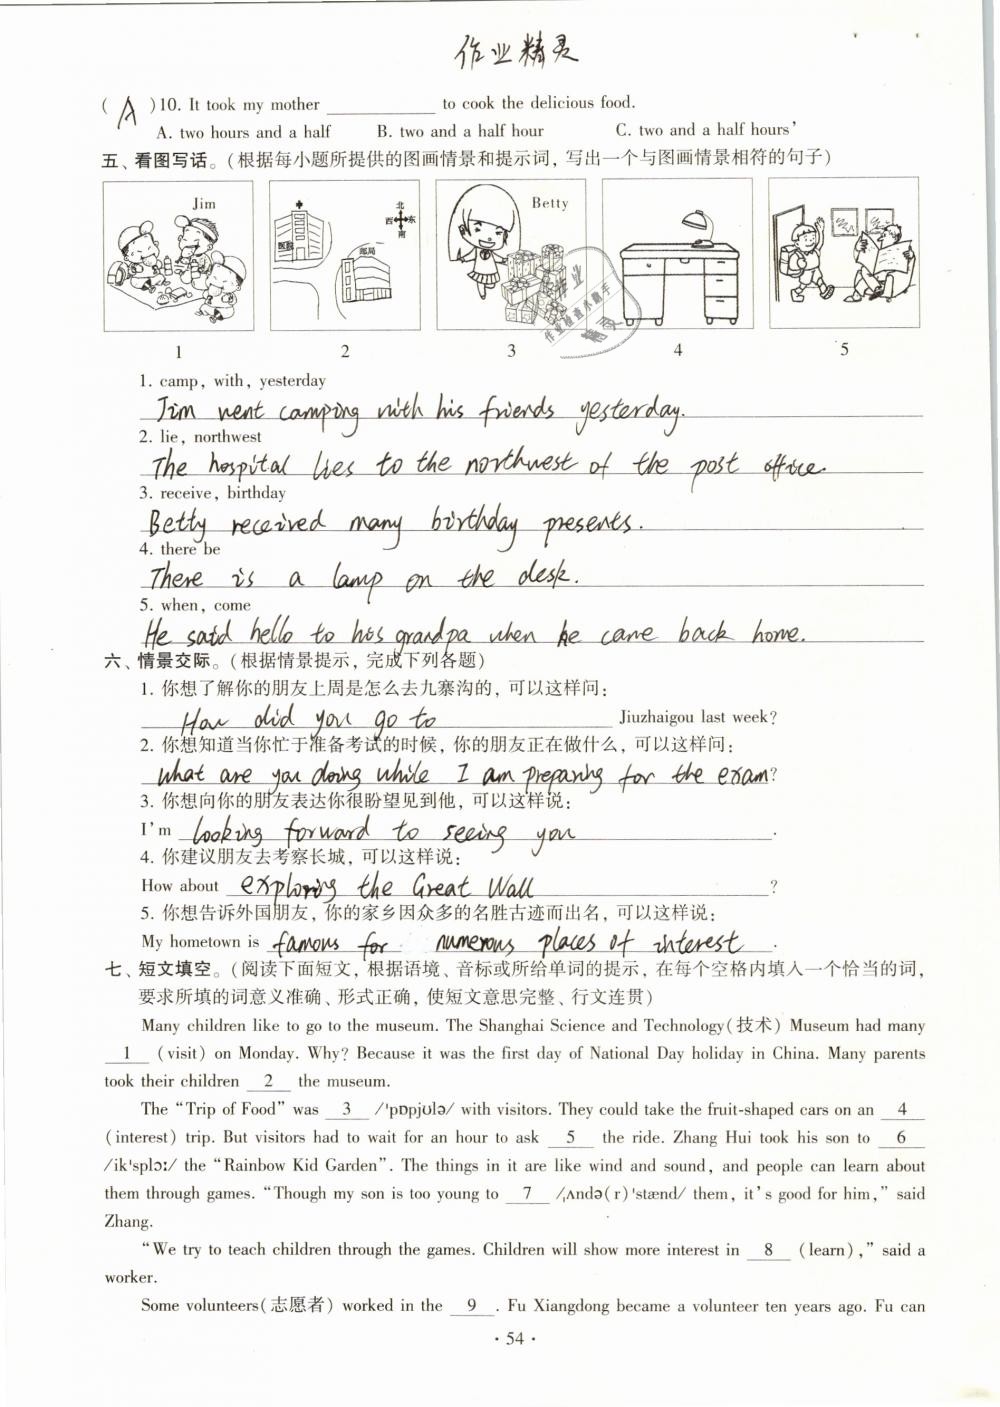 作业精灵
( A )10. It took my mother ____________ to cook the delicious food.
A. two hours and a half B. two and a half hour C. two and a half hours'
五、看图写话。(根据每小题所提供的图画情景和提示词，写出一个与图画情景相符的句子)
Jim 医院 邮局 北 西 东 南 Betty
作业 作业检查小助手 精灵
1 2 3 4 5
1. camp, with, yesterday
Jim went camping with his friends yesterday.
2. lie, northwest
The hospital lies to the northwest of the post office.
3. receive, birthday
Betty received many birthday presents.
4. there be
There is a lamp on the desk.
5. when, come
He said hello to his grandpa when he came back home.
六、情景交际。(根据情景提示，完成下列各题)
1. 你想了解你的朋友上周是怎么去九寨沟的，可以这样问：
How did you go to Jiuzhaigou last week?
2. 你想知道当你忙于准备考试的时候，你的朋友正在做什么，可以这样问：
What are you doing while I am preparing for the exam?
3. 你想向你的朋友表达你很盼望见到他，可以这样说：
I'm looking forward to seeing you.
4. 你建议朋友去考察长城，可以这样说：
How about exploring the Great Wall?
5. 你想告诉外国朋友，你的家乡因众多的名胜古迹而出名，可以这样说：
My hometown is famous for numerous places of interest.
七、短文填空。(阅读下面短文，根据语境、音标或所给单词的提示，在每个空格内填入一个恰当的词，
要求所填的词意义准确、形式正确，使短文意思完整、行文连贯)
Many children like to go to the museum. The Shanghai Science and Technology(技术) Museum had many
1 (visit) on Monday. Why? Because it was the first day of National Day holiday in China. Many parents
took their children 2 the museum.
The "Trip of Food" was 3 /'pɒpjʊlə/ with visitors. They could take the fruit-shaped cars on an 4
(interest) trip. But visitors had to wait for an hour to ask 5 the ride. Zhang Hui took his son to 6
/ik'splɔː/ the "Rainbow Kid Garden". The things in it are like wind and sound, and people can learn about
them through games. "Though my son is too young to 7 /ˌʌndə(r)'stænd/ them, it's good for him," said
Zhang.
"We try to teach children through the games. Children will show more interest in 8 (learn)," said a
worker.
Some volunteers(志愿者) worked in the 9 . Fu Xiangdong became a volunteer ten years ago. Fu can
· 54 ·